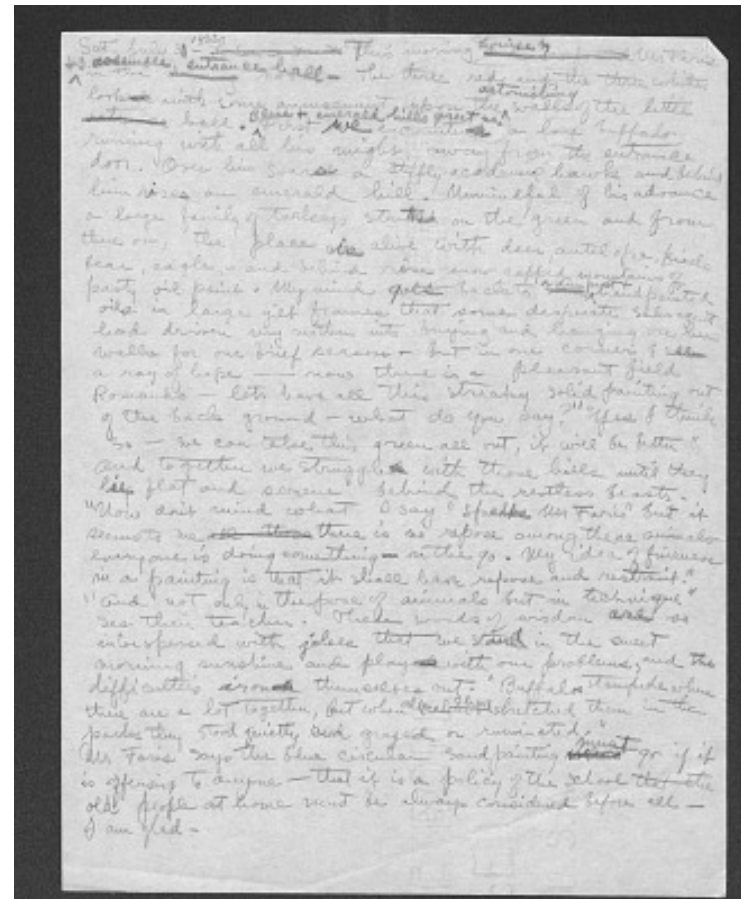 Sat. July 3 - This morning Mr Faris
assembles, entrance hall - The three reds and the three whites
look with some amusement upon the astonishing walls of the little
hall. Blue & emerald hills greet us. First we encounter a large buffalo
running with all his might away from the entrance
door. Over him soars a stiffly academic hawk and behind
him rises an emerald hill. Unmindful of his advance
a large family of turkeys on the green and from
there on, the place is alive with deer antelope, birds
bear, eagle, and behind rise snow capped mountains of
pasty oil paint. My mind back to handpainted
oils in large gilt frames that some desperate
had driven my mother into buying and hanging on her
walls for one brief season - But in one corner I
a ray of hope — now there is a pleasant field
Romando - lets have all this streaky solid painting out
of the back ground - what do you say?" "Yes I think
so - we can take this green all out, it will be better"
and together we struggle with those hills until they
lie flat and serene behind the restless beasts.
"Now don't mind what I say" Mr Faris "But it
seems to me there is no repose among these animals
everyone is doing something - on the go. My idea of fineness
in a painting is that it shall have repose and restraint."
"And not only in the pose of animals but in technique"
says their teacher. These words of wisdom are so
interspersed with jokes that we in the sweet
morning sunshine and play with our problems, and the
difficulties themselves out. "Buffalo stampede when
there are a lot together, but when sketched them in the
parks they stood quietly and grazed or ruminated."
Mr Faris says the blue circular sandpainting must go if it
is offensive to anyone - that it is a policy of the school
old people at home must be always considered before all -
I am glad -